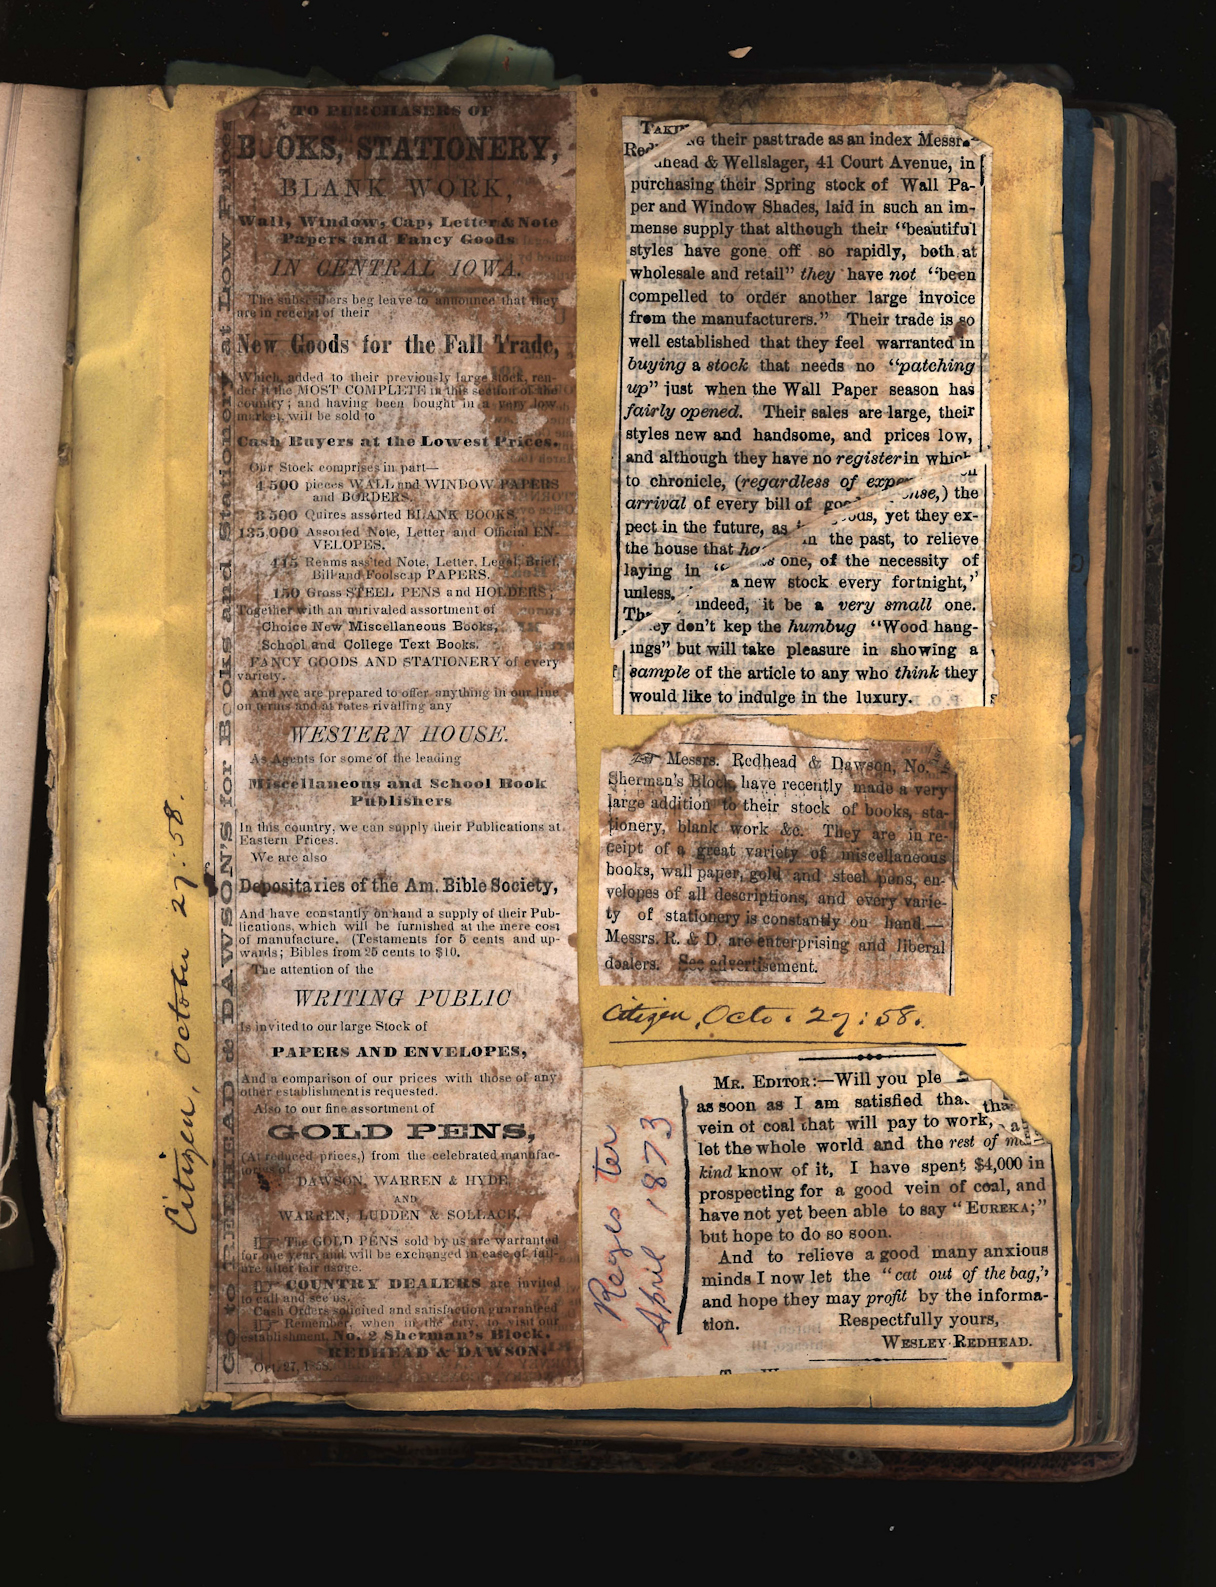 GO to REDHEAD & DAWSON'S for Books and Stationery at Low Prices
TO PURCHASERS OF
BOOKS, STATIONERY,
BLANK WORK,
Wall, Window, Cap, Letter & Note
Papers and Fancy Goods
IN CENTRAL IOWA.
The subscribers beg leave to announce that they
are in receipt of their
New Goods for the Fall Trade,
Which, added to their previously large stock, ren-
der it the MOST COMPLETE in this section of the
country; and having been bought in a very low
market, will be sold to
Cash Buyers at the Lowest Prices.
Our Stock comprises in part—
4,500 pieces WALL and WINDOW PAPERS
and BORDERS.
3,500 Quires assorted BLANK BOOKS.
135,000 Assorted Note, Letter and Official EN-
VELOPES.
415 Reams ass'ted Note, Letter, Legal, Brief,
Bill and Foolscap PAPERS.
150 Gross STEEL PENS and HOLDERS;
Together with an unrivaled assortment of
Choice New Miscellaneous Books,
School and College Text Books.
FANCY GOODS AND STATIONERY of every
variety.
And we are prepared to offer anything in our line
on terms and at rates rivalling any
WESTERN HOUSE.
As Agents for some of the leading
Miscellaneous and School Book
Publishers
In this country, we can supply their Publications at
Eastern Prices.
We are also
Depositaries of the Am. Bible Society,
And have constantly on hand a supply of their Pub-
lications, which will be furnished at the mere cost
of manufacture. (Testaments for 5 cents and up-
wards; Bibles from 25 cents to $10.
The attention of the
WRITING PUBLIC
Is invited to our large Stock of
PAPERS AND ENVELOPES,
And a comparison of our prices with those of any
other establishment is requested.
Also to our fine assortment of
GOLD PENS,
(At reduced prices,) from the celebrated manufac-
tories of
DAWSON, WARREN & HYDE,
AND
WARREN, LUDDEN & SOLLACE.
The GOLD PENS sold by us are warranted
for one year, and will be exchanged in case of fail-
ure after fair usage.
COUNTRY DEALERS are invited
to call and see us.
Cash Orders solicited and satisfaction guaranteed
Remember, when in the city, to visit our
establishment, No. 2 Sherman's Block.
REDHEAD & DAWSON.
Oct. 27, 1858.
Citizen, October 27: 58.
TAKING their past trade as an index Messrs.
Redhead & Wellslager, 41 Court Avenue, in
purchasing their Spring stock of Wall Pa-
per and Window Shades, laid in such an im-
mense supply that although their "beautiful
styles have gone off so rapidly, both at
wholesale and retail" they have not "been
compelled to order another large invoice
from the manufacturers." Their trade is so
well established that they feel warranted in
buying a stock that needs no "patching
up" just when the Wall Paper season has
fairly opened. Their sales are large, their
styles new and handsome, and prices low,
and although they have no register in which
to chronicle, (regardless of expense,) the
arrival of every bill of goods, yet they ex-
pect in the future, as in the past, to relieve
the house that has one, of the necessity of
laying in "a new stock every fortnight,"
unless, indeed, it be a very small one.
They don't kep the humbug "Wood hang-
ings" but will take pleasure in showing a
sample of the article to any who think they
would like to indulge in the luxury.
Messrs. Redhead & Dawson, No. 2
Sherman's Block, have recently made a very
large addition to their stock of books, sta-
tionery, blank work &c. They are in re-
ceipt of a great variety of miscellaneous
books, wall paper, gold and steel pens, en-
velopes of all descriptions, and every varie-
ty of stationery is constantly on hand.—
Messrs. R. & D. are enterprising and liberal
dealers. See advertisement.
Citizen, Octo. 27: 58.
Register
April 1873
MR. EDITOR:—Will you ple
as soon as I am satisfied that
vein of coal that will pay to work,
let the whole world and the rest of man-
kind know of it, I have spent $4,000 in
prospecting for a good vein of coal, and
have not yet been able to say "EUREKA;"
but hope to do so soon.
And to relieve a good many anxious
minds I now let the "cat out of the bag,"
and hope they may profit by the informa-
tion. Respectfully yours,
WESLEY REDHEAD.